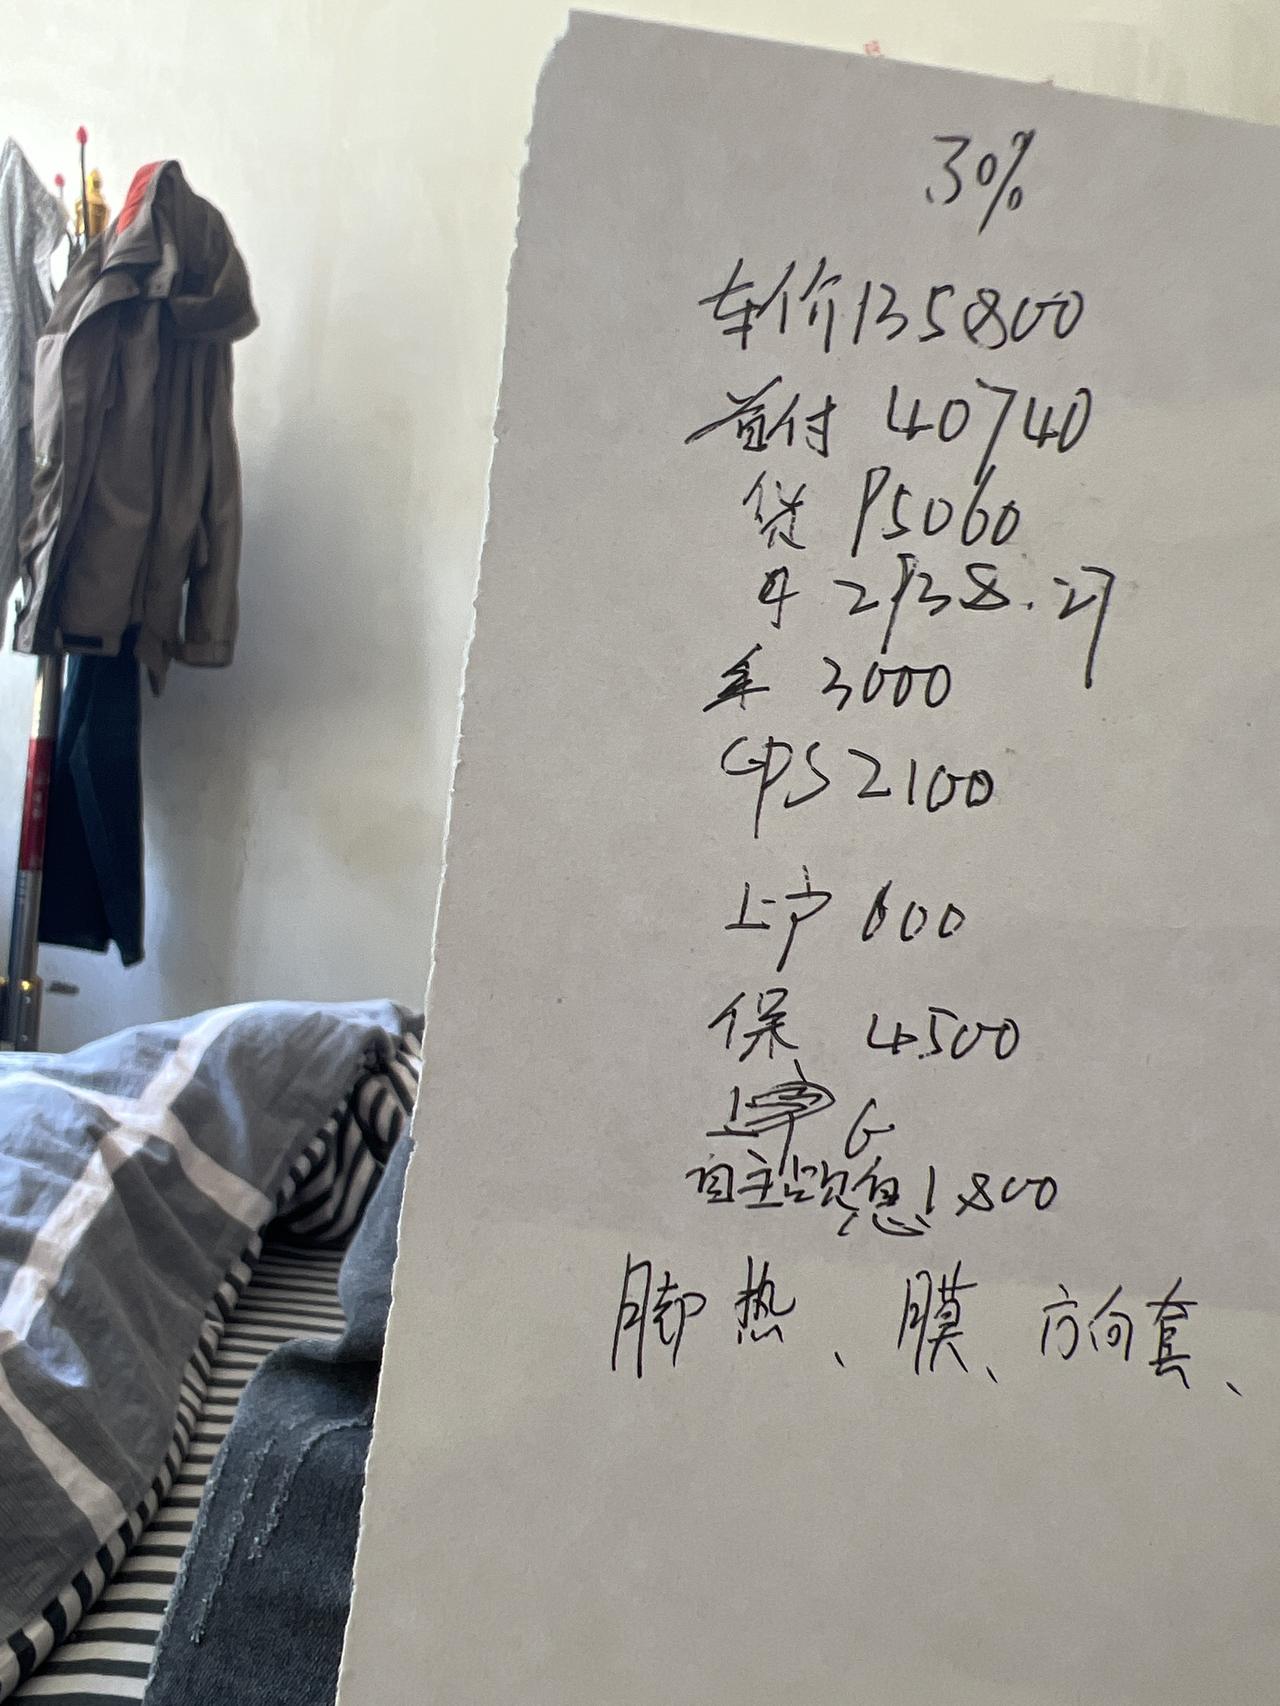 30%
车价135800
首付 40740
贷 95060
月 2938.27
3000
GPS 2100
上户 600
保 4500
上户 6
自主贴息1800
脚热、膜、方向套、